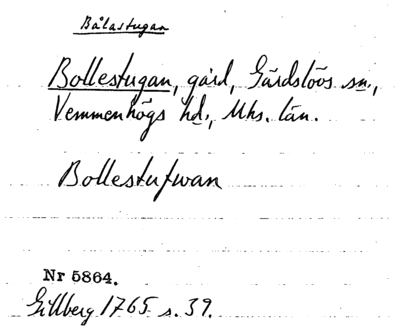 Bålastugan
Bollestugan, gård, Gärdslövs sn.,
Vemmenhögs hd., Mhs. län.
Bollestufwan
Nr 5864.
Gillberg 1765 s. 39.